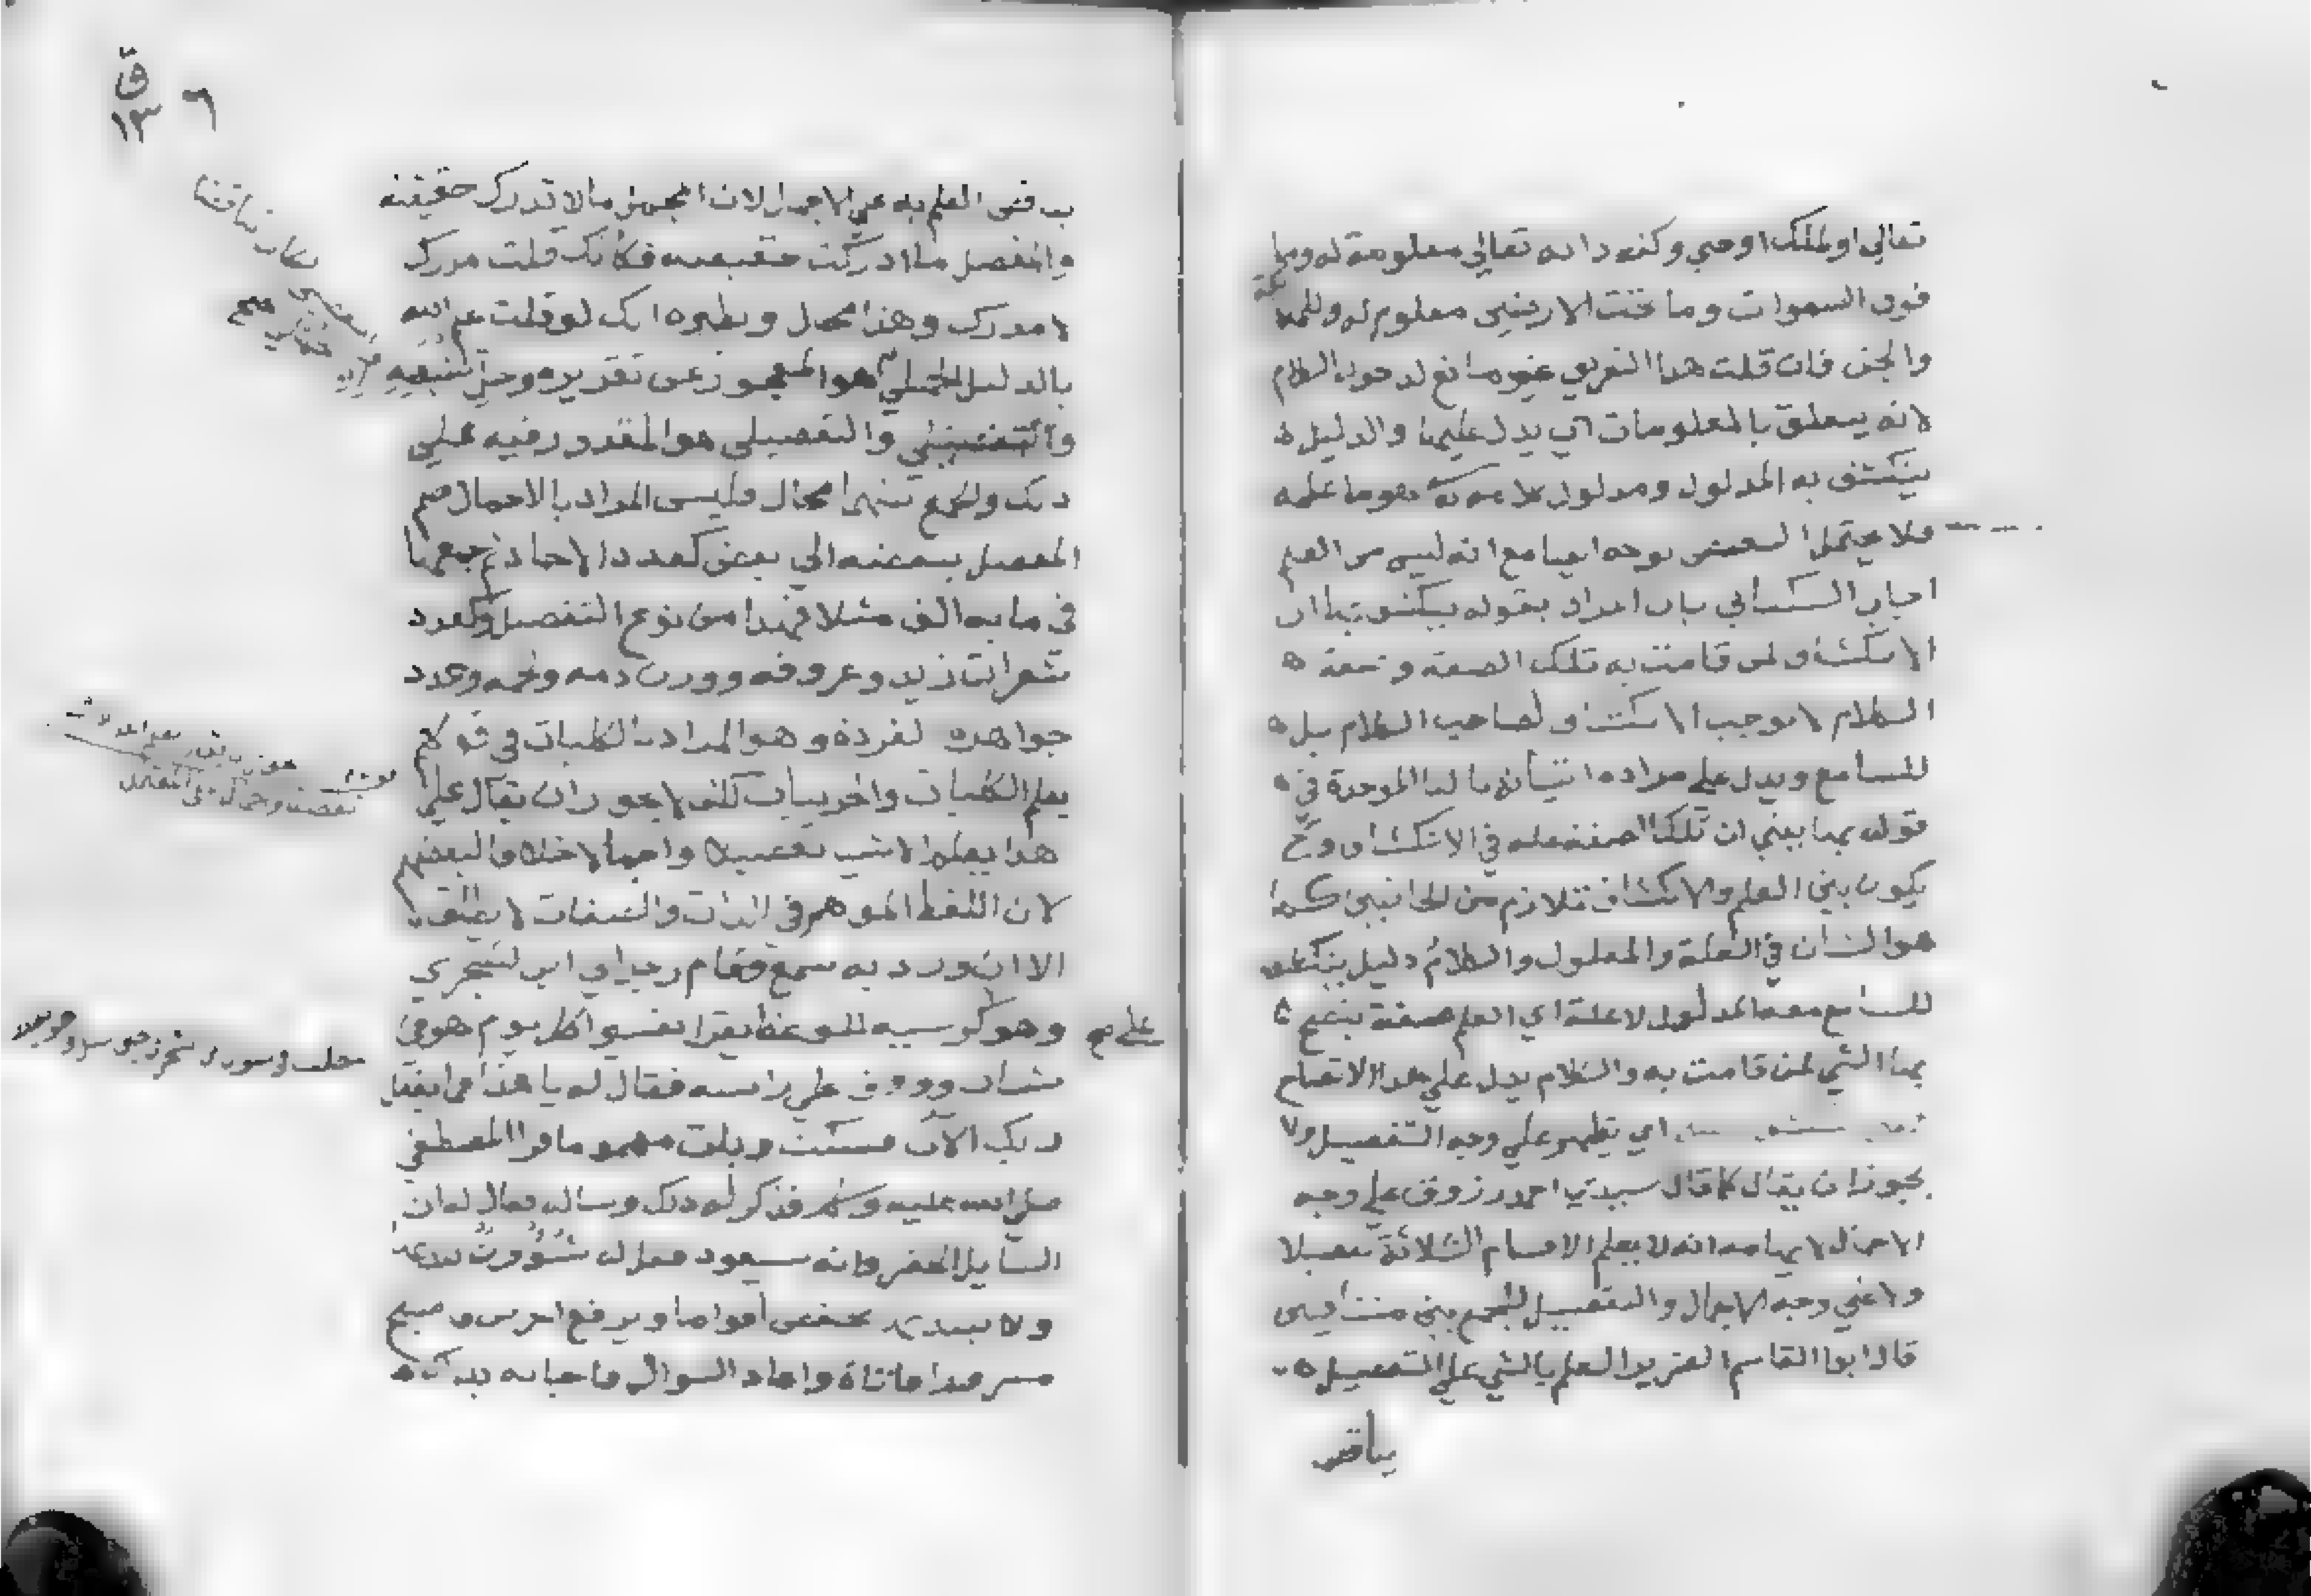 تعالى او لملك او جني وكنه ذاته تعالى معلومة له وما
فوق السموات وما تحت الارضين معلوم له وللملائكة
والجن فان قلت هذا التعريف غير مانع لدخول الكلام
لانه يتعلق بالمعلومات اي يدل عليها والدليل
ينكشف به المدلول ومدلول كلامه هو ما علمه
فلا يحتمل النقيض بوجه ايضا مع انه ليس من العلم
اجاب السكتاني بان المراد بقوله ينكشف بها ان
الانكشاف لمن قامت به تلك الصفة وصفة
الكلام لا توجب الانكشاف لصاحب الكلام بل
للسامع ويدل على مراده اتيانه بالباء الموحدة في
قوله بها يعني ان تلك الصفة علة في الانكشاف وح
يكون بين العلم والانكشاف تلازم من الجانبين كما
هو الشان في العلة والمعلول والكلام دليل ينكشف
للسامع معه المدلول لا علة اي العلم صفة يتضح
بها الشي لمن قامت به والكلام يدل على هذا الاتضاح
اي يظهر على وجه التفصيل ولا
يجوز ان يقال كما قال سيدي احمد زروق على وجه
الاجمال لايهامه انه لا يعلم الاقسام الثلاثة تفصيلا
ولا على وجه الاجمال والتفصيل للجمع بين متنافيين
قال ابو القاسم العلم بالشي على التفصيل
يناقض
٦
ق
١٣
يناقض العلم به على الاجمال لان المجمل ما لا تدرك حقيقته
والمفصل ما ادركت حقيقته فكانك قلت مدرك
لا مدرك وهذا محال ونظيره انك لو قلت علم الله
بالدليل الجملي هو المعجوز عن تقريره وحل شبهه
والتفصيلي هو المقدور فيه على
ذلك والجمع بينهما محال وليس المراد بالاجمال ضم
المفصل بعضه الى بعض كعدد الاحاد ثم جمعها
في ماية الف مثلا فهذا من نوع التفصيل وكعدد
شعرات زيد وعروقه ووزن دمه ولحمه وعدد
جواهره الفردة وهو المراد بالكليات في قولهم
يعلم الكليات والجزييات لكنه لا يجوز ان يقال على
هذا يعلم الاشيا تفصيلا واجمالا خلافا لبعضهم
لان اللفظ الموهم في الذات والصفات لا يطلق
الا ان ورد به سمع فقام رجل لابن الشجري
وهو كرسيه للوعظ يقرا تفسير كل يوم هو في
على صح
شان ووقف على راسه فقال له يا هذا فما يفعل
ربك الآن فسكت وبات مهموما فراى المصطفى
صلى الله عليه وسلم فذكر له ذلك وساله فقال له ان
السايل الخضر وانه سيعود فقل له شؤون يبديها
ولا يبتديها يخفض اقواما ويرفع اخرين فاصبح
مسرورا فاتاه واعاد السوال فاجابه بذلك